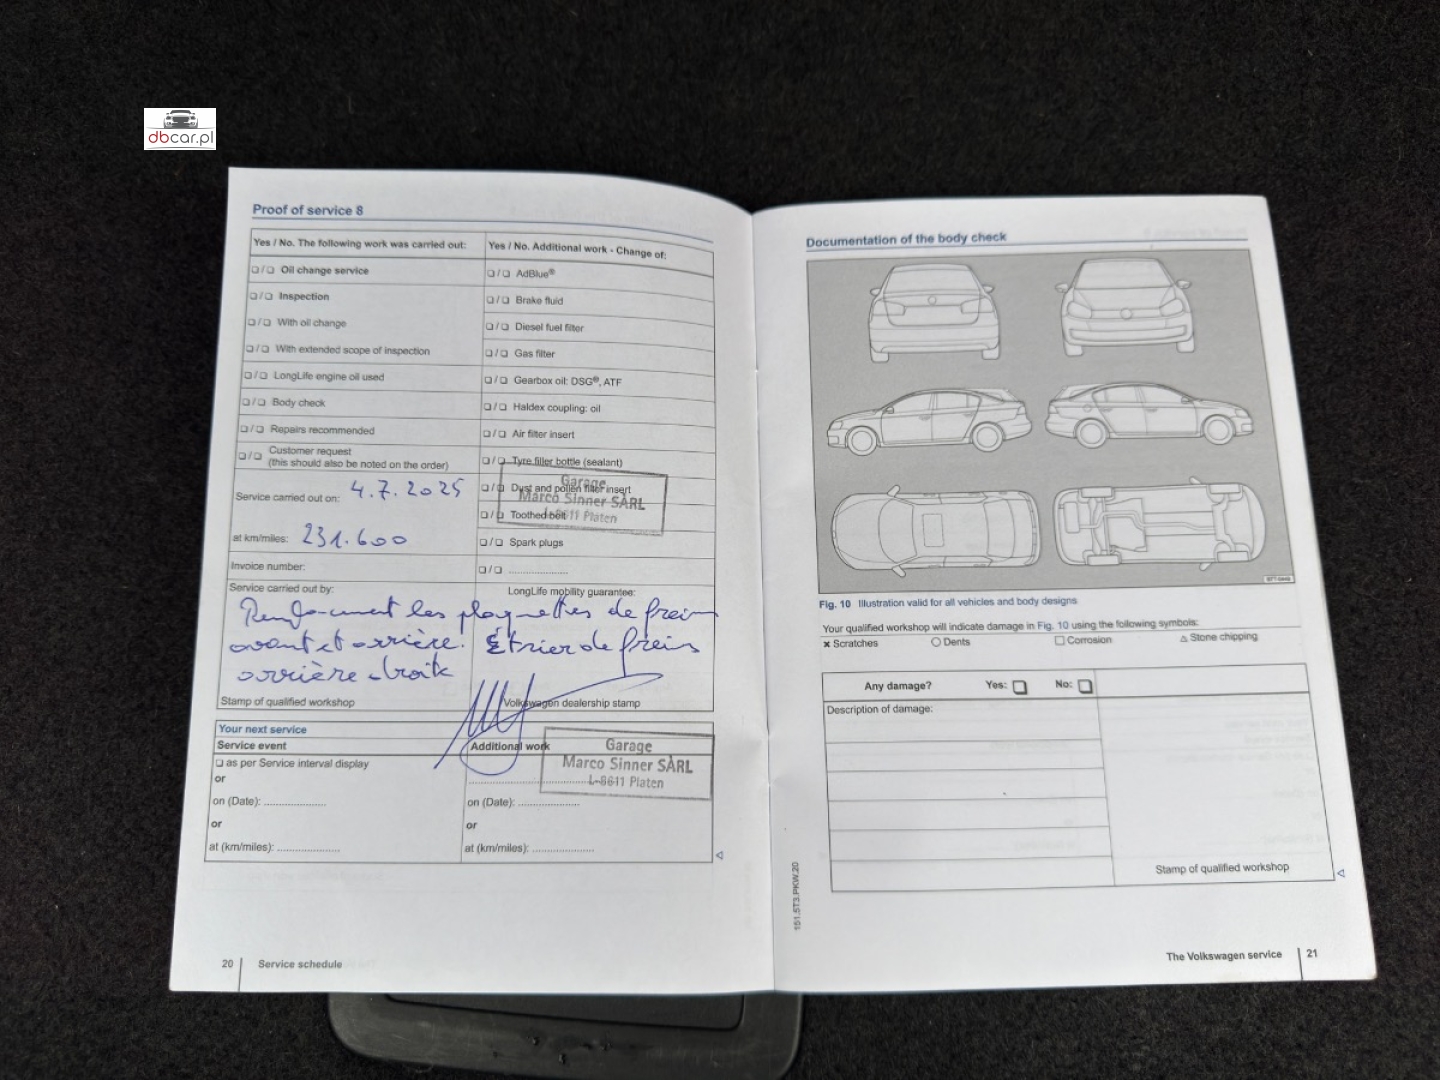 dbcar.pl
Proof of service 8
Yes / No. The following work was carried out:
❑ / ❑ Oil change service
❑ / ❑ Inspection
❑ / ❑ With oil change
❑ / ❑ With extended scope of inspection
❑ / ❑ LongLife engine oil used
❑ / ❑ Body check
❑ / ❑ Repairs recommended
❑ / ❑ Customer request
(this should also be noted on the order)
Service carried out on: 4.7.2025
at km/miles: 231.600
Invoice number:
Yes / No. Additional work - Change of:
❑ / ❑ AdBlue®
❑ / ❑ Brake fluid
❑ / ❑ Diesel fuel filter
❑ / ❑ Gas filter
❑ / ❑ Gearbox oil: DSG®, ATF
❑ / ❑ Haldex coupling: oil
❑ / ❑ Air filter insert
❑ / ❑ Tyre filler bottle (sealant)
❑ / ❑ Dust and pollen filter insert
❑ / ❑ Toothed belt
❑ / ❑ Spark plugs
❑ / ❑ ....................
Garage
Marco Sinner SÀRL
L-8611 Platen
Service carried out by:
LongLife mobility guarantee:
les plaquettes de frein
avant et arrière. Étrier de freins
arrière droite
Stamp of qualified workshop
Volkswagen dealership stamp
Your next service
Service event
❑ as per Service interval display
or
on (Date): ....................
or
at (km/miles): ....................
Additional work
on (Date): ....................
or
at (km/miles): ....................
Garage
Marco Sinner SÀRL
L-8611 Platen
20 Service schedule
Documentation of the body check
Fig. 10 Illustration valid for all vehicles and body designs
Your qualified workshop will indicate damage in Fig. 10 using the following symbols:
× Scratches ○ Dents □ Corrosion △ Stone chipping
Any damage? Yes: ❑ No: ❑
Description of damage:
Stamp of qualified workshop
151.5T3.PKW.20
The Volkswagen service 21